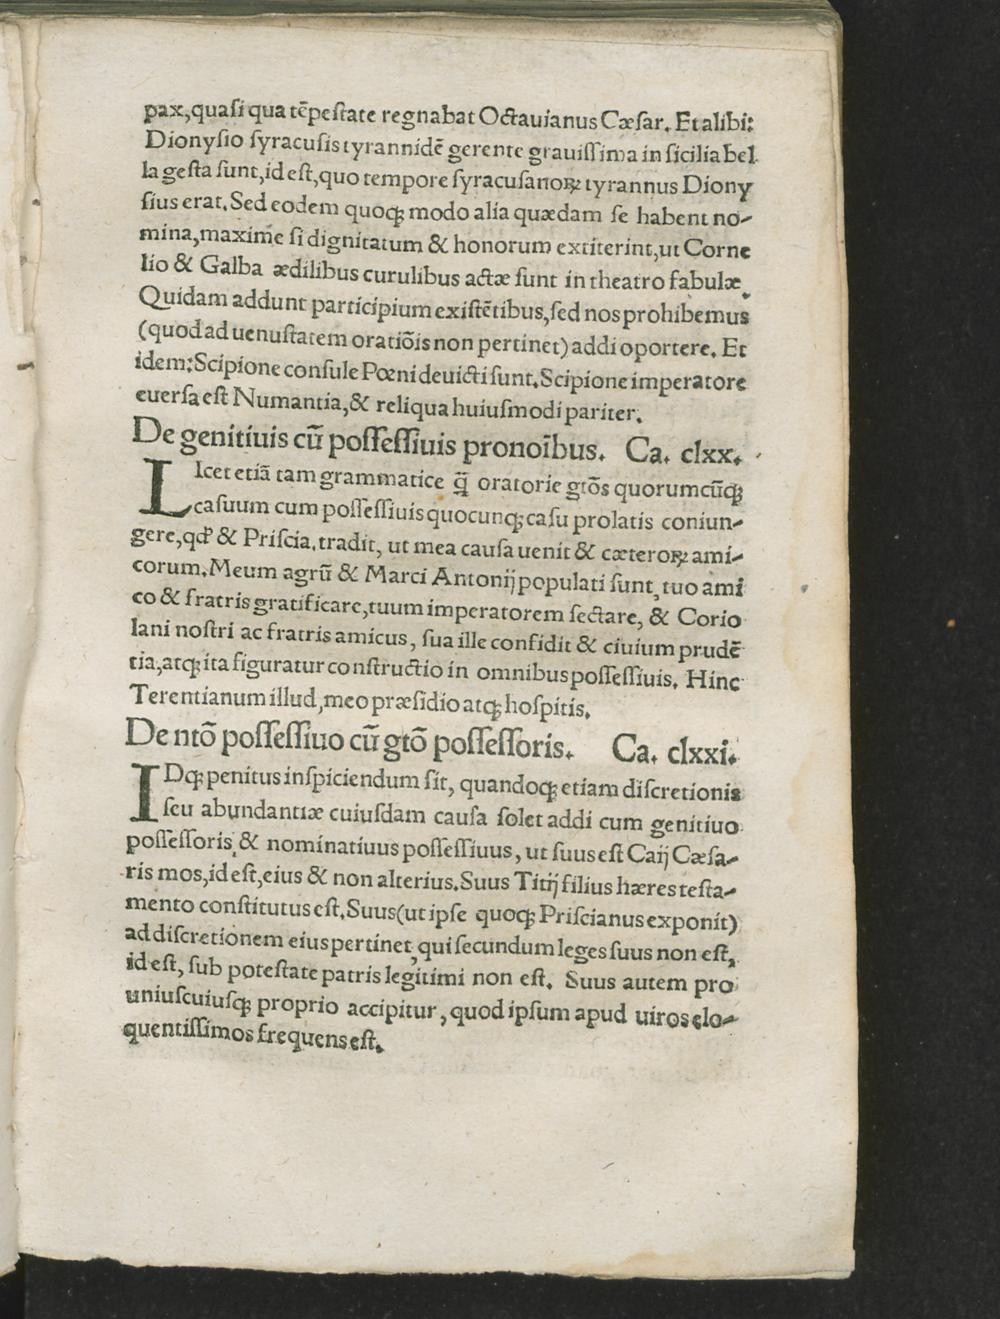 pax,quaſi qua tēpeſtate regnabat Octauianus Cæſar. Et alibi:
Dionyſio ſyracuſis tyrannidē gerente grauiſſima in ſicilia bel
la geſta ſunt,id eſt,quo tempore ſyracuſanoꝝ tyrannus Diony
ſius erat. Sed eodem quoqꝫ modo alia quædam ſe habent no-
mina,maxime ſi dignitatum & honorum extiterint,ut Corne
lio & Galba ædilibus curulibus actæ ſunt in theatro fabulæ.
Quidam addunt participium exiſtētibus,ſed nos prohibemus
(quod ad uenuſtatem oratiōis non pertinet) addi oportere. Et
idem:Scipione conſule Pœni deuicti ſunt.Scipione imperatore
euerſa eſt Numantia,& reliqua huiuſmodi pariter.
De genitiuis cū poſſeſſiuis pronoībus. Ca. clxx.
LIcet etiā tam grammatice q̄ oratorie gtōs quorumcūqꝫ
caſuum cum poſſeſſiuis quocunqꝫ caſu prolatis coniun-
gere,qđ & Priſcia.tradit, ut mea cauſa uenit & cæteroꝝ ami-
corum.Meum agrū & Marci Antonij populati ſunt, tuo ami
co & fratris gratificare,tuum imperatorem ſectare, & Corio
lani noſtri ac fratris amicus, ſua ille confidit & ciuium prudē
tia,atqꝫ ita figuratur conſtructio in omnibus poſſeſſiuis. Hinc
Terentianum illud,meo præſidio atqꝫ hoſpitis.
De ntō poſſeſſiuo cū gtō poſſeſſoris. Ca. clxxi.
IDqꝫ penitus inſpiciendum ſit, quandoqꝫ etiam diſcretionis
ſeu abundantiæ cuiuſdam cauſa ſolet addi cum genitiuo
poſſeſſoris,& nominatiuus poſſeſſiuus, ut ſuus eſt Caij Cæſa-
ris mos,id eſt,eius & non alterius.Suus Titij filius hæres teſta-
mento conſtitutus eſt.Suus(ut ipſe quoqꝫ Priſcianus exponit)
ad diſcretionem eius pertinet,qui ſecundum leges ſuus non eſt,
id eſt, ſub poteſtate patris legitimi non eſt. Suus autem pro
uniuſcuiuſqꝫ proprio accipitur, quod ipſum apud uiros elo-
quentiſſimos frequens eſt.